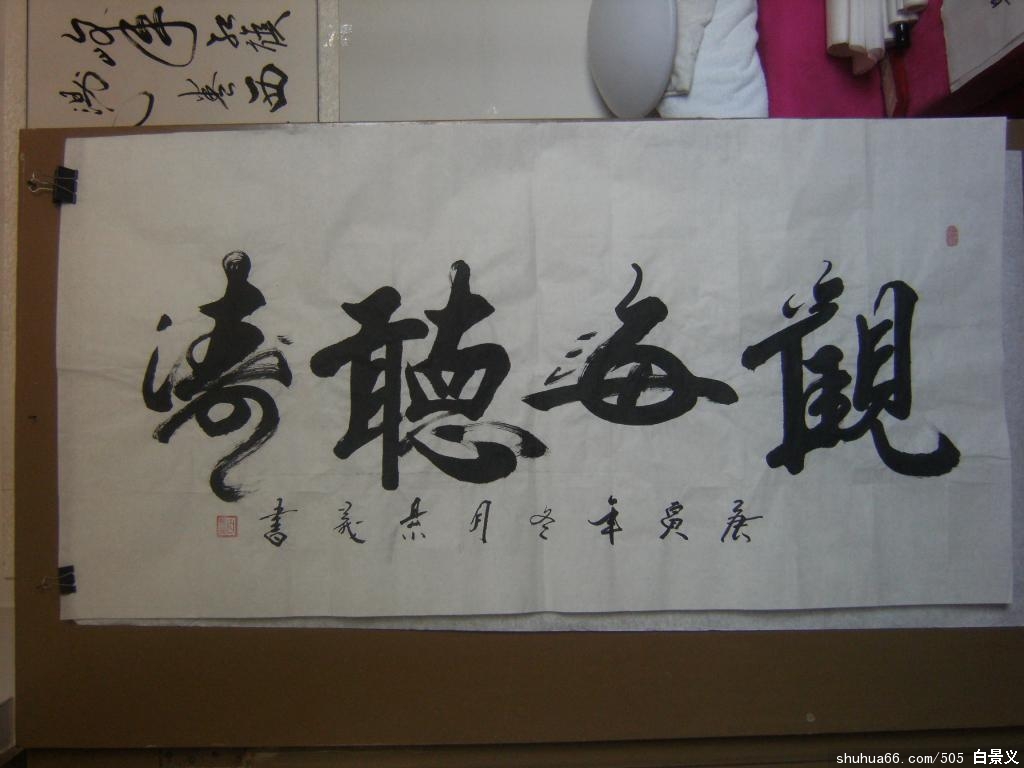 紅旗
捲西
峰
觀海聽濤
庚寅年冬月景義書
shuhua66.com/505 白景义